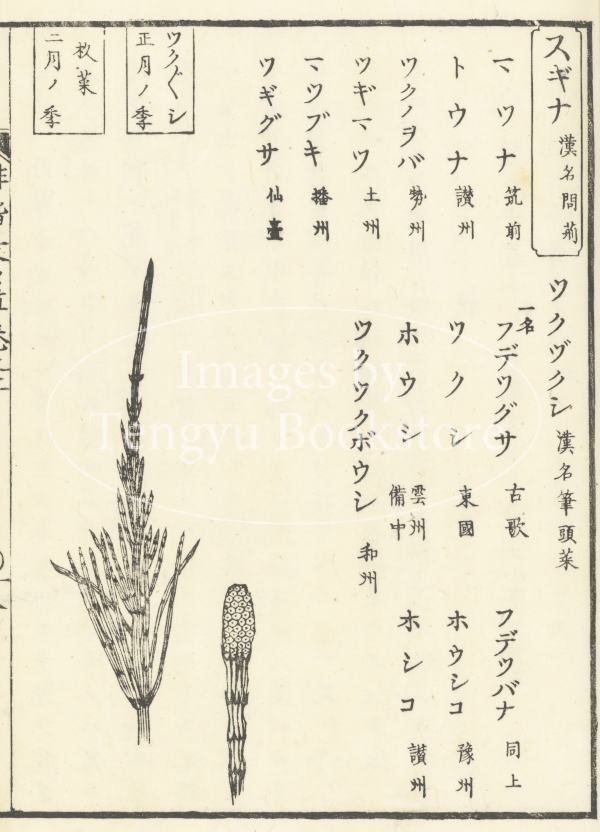 スギナ 漢名問荊
マツナ 筑前
トウナ 讃州
ツクノヲバ 勢州
ツギマツ 土州
マツブキ 播州
ツギグサ 仙臺
ツクヅクシ 漢名筆頭菜
一名 フデツグサ 古歌
フデツバナ 同上
ツクシ 東國
ホウシコ 豫州
ホウシ 雲州 備中
ホシコ 讃州
ツクツクボウシ 和州
ツク〲シ
正月ノ季
菜
二月ノ季
Images by
Tengyu Bookstore